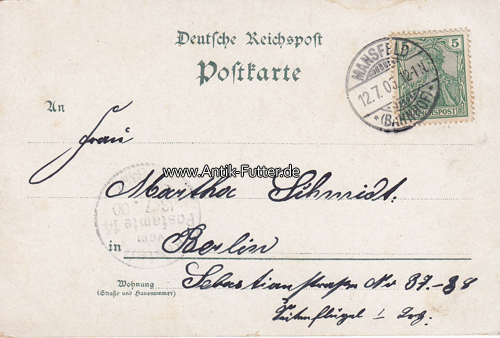 Deutsche Reichspost
Postkarte
5
REICHSPOST
MANSFELD
12.7.0
12-1 N.
(BAHNHOF)
An
Frau
www.Antik-Futter.de
Martha Schmidt.
Postamte 14
vom
in Berlin
Wohnung
(Straße und Hausnummer)
Sebastianstraße No 37-38
Seitenflügel 1 Trg.